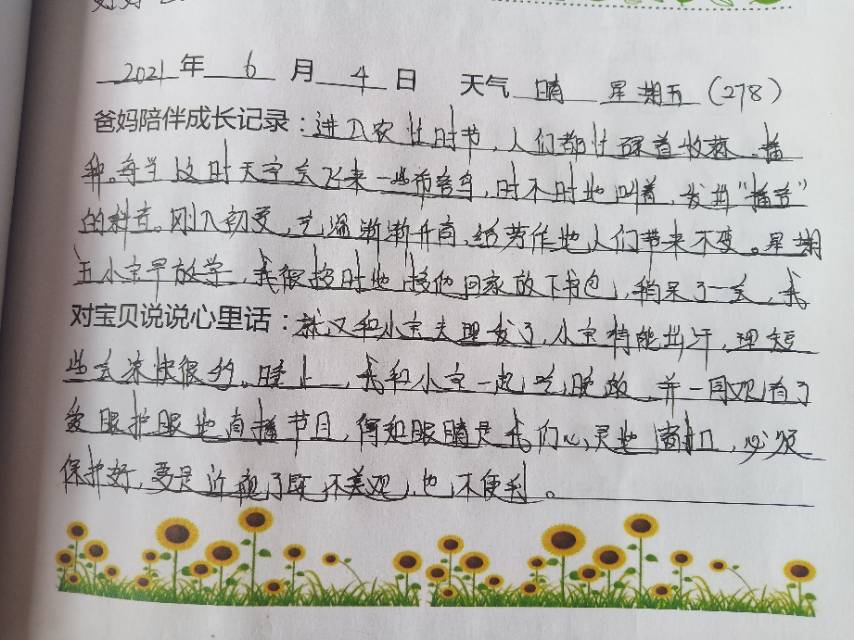 2021年 6 月 4 日 天气 晴 星期五（278）
爸妈陪伴成长记录：进入农忙时节，人们都忙碌着收获、播
种。每当这时天空会飞来一些布谷鸟，时不时地叫着，发出“播谷”
的声音。刚入初夏，气温渐渐升高，给劳作地人们带来不变。星期
五小宝早放学，我很按时地接他回家放下书包，稍呆了一会，我
对宝贝说说心里话：就又和小宝去理发了，小宝特能出汗，理短
些会凉快很多。晚上，我和小宝一起吃晚饭，并一同观看了
爱眼护眼地直播节目，得知眼睛是我们心灵地窗口，必须
保护好，要是近视了既不美观，也不便利。